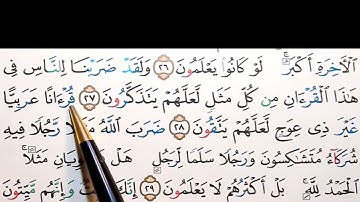 ٱلۡأٓخِرَةِ أَكۡبَرُۚ لَوۡ كَانُوا۟ يَعۡلَمُونَ ٢٦ وَلَقَدۡ ضَرَبۡنَا لِلنَّاسِ فِي
هَٰذَا ٱلۡقُرۡءَانِ مِن كُلِّ مَثَلٖ لَّعَلَّهُمۡ يَتَذَكَّرُونَ ٢٧ قُرۡءَانًا عَرَبِيًّا
غَيۡرَ ذِي عِوَجٖ لَّعَلَّهُمۡ يَتَّقُونَ ٢٨ ضَرَبَ ٱللَّهُ مَثَلٗا رَّجُلٗا فِيهِ
شُرَكَآءُ مُتَشَٰكِسُونَ وَرَجُلٗا سَلَمٗا لِّرَجُلٍ هَلۡ يَسۡتَوِيَانِ مَثَلًاۚ
ٱلۡحَمۡدُ لِلَّهِۚ بَلۡ أَكۡثَرُهُمۡ لَا يَعۡلَمُونَ ٢٩ إِنَّكَ مَيِّتٞ وَإِنَّهُم مَّيِّتُونَ